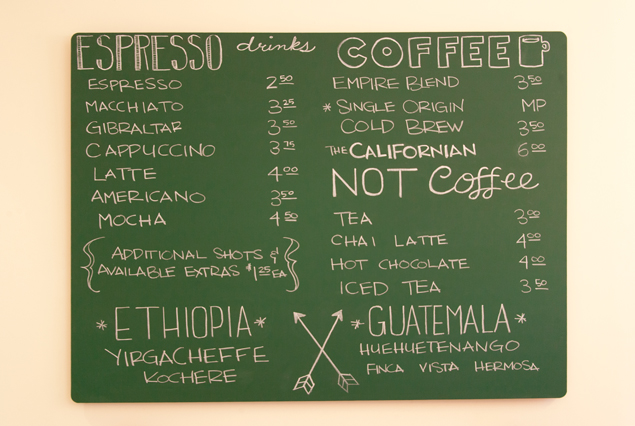 ESPRESSO drinks
ESPRESSO 2 50
MACCHIATO 3 25
GIBRALTAR 3 50
CAPPUCCINO 3 75
LATTE 4 00
AMERICANO 3 50
MOCHA 4 50
{ADDITIONAL SHOTS &
AVAILABLE EXTRAS $1 25 EA}
COFFEE
EMPIRE BLEND 3 50
* SINGLE ORIGIN MP
COLD BREW 3 50
THE CALIFORNIAN 6 00
NOT Coffee
TEA 3 00
CHAI LATTE 4 00
HOT CHOCOLATE 4 00
ICED TEA 3 50
*ETHIOPIA*
YIRGACHEFFE
KOCHERE
*GUATEMALA*
HUEHUETENANGO
FINCA VISTA HERMOSA